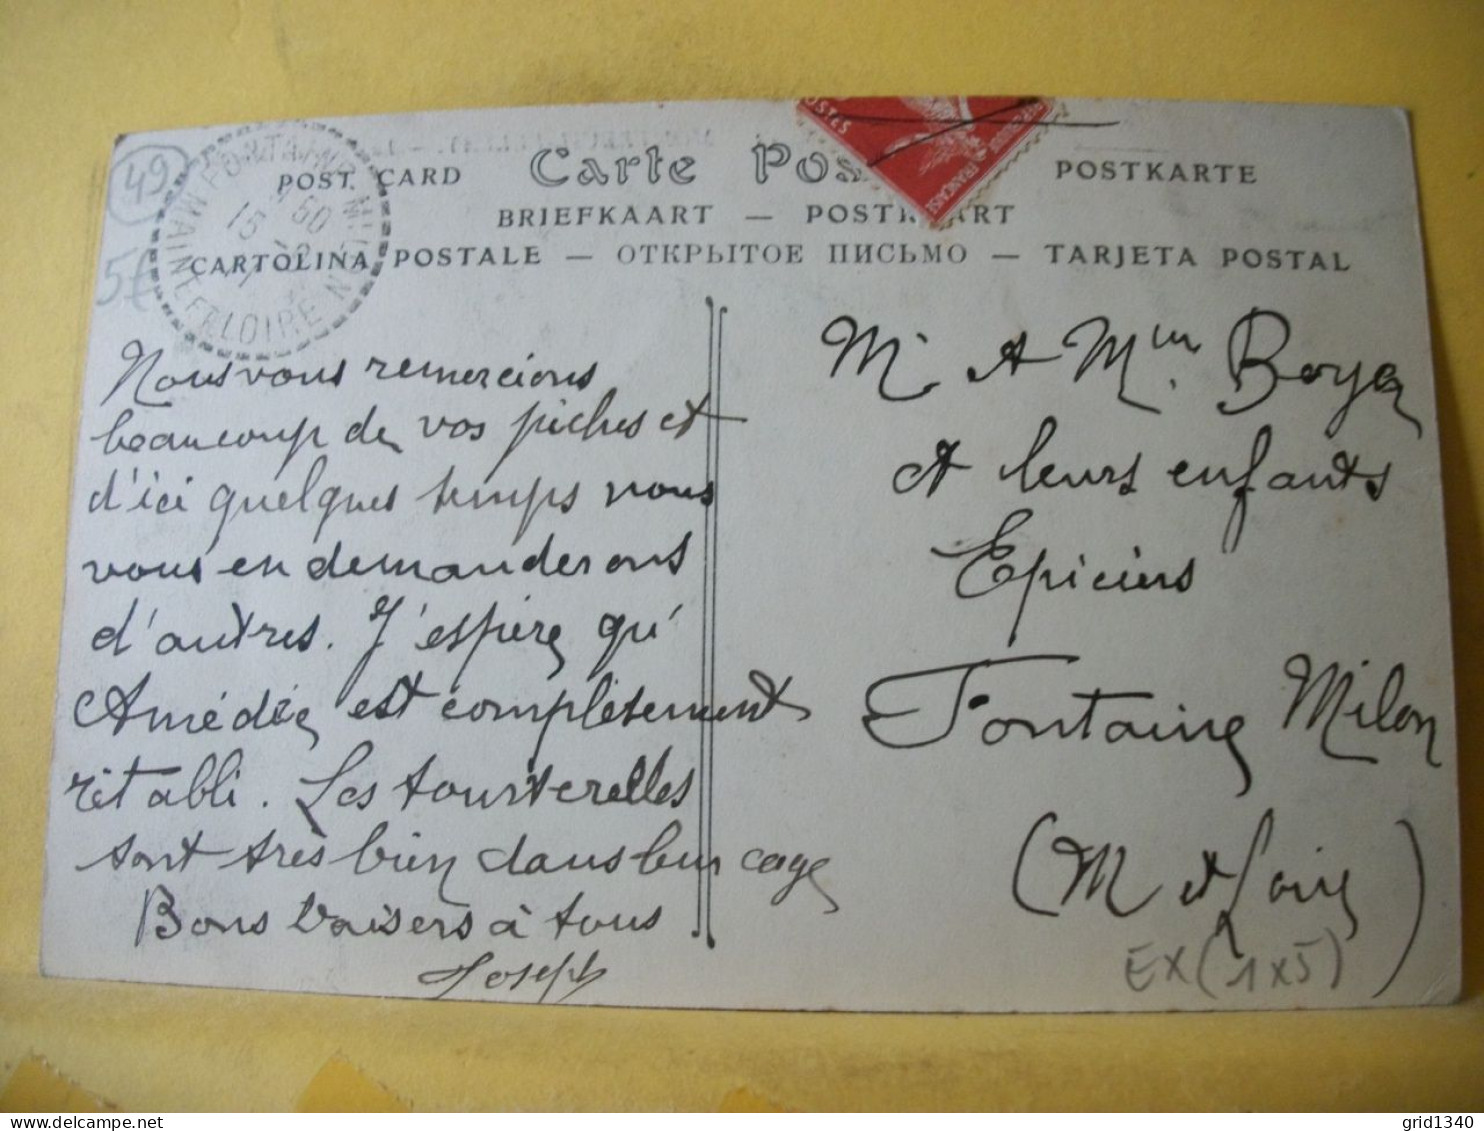 49
5€
FONTAINE MILON
15 50
MAINE ET LOIRE
POST CARD
Carte Pos
POSTES
FRANÇAISE
POSTKARTE
BRIEFKAART — POSTK ART
CARTOLINA POSTALE — ОТКРЫТОЕ ПИСЬМО — TARJETA POSTAL
Nous vous remercions
beaucoup de vos pêches et
d'ici quelques temps nous
vous en demanderons
d'autres. J'espère qu'
Amédée est complètement
rétabli. Les tourterelles
sont très bien dans leur cage
Bons baisers à tous
Joseph
Mr et Mme Boyer
et leurs enfants
Epiciers
Fontaine Milon
(M et Loire)
EX (1x5)
grid1340